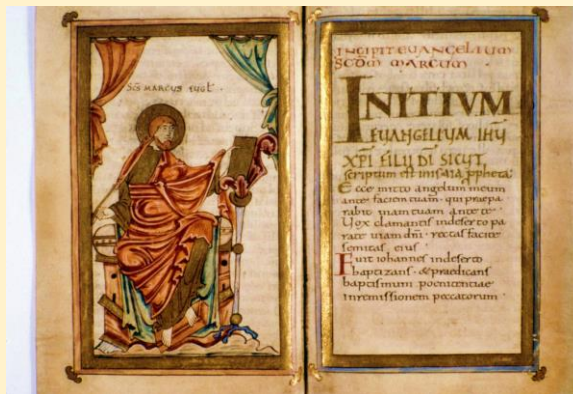 SC̄S MARCUS EVGL̄.
INCIPIT EVANGELIUM
SCD̄M MARCUM
INITIUM
EUANGELIUM IHŪ
XPĪ FILII DĪ SICUT
scriptum est in isaia ppheta;
Ecce mitto angelum meum
ante faciem tuam · qui praepa
rabit uiam tuam ante te
Uox clamantis in deserto pa
rate uiam dn̄i · rectas facite
semitas eius
Fuit iohannes in deserto
baptizans · & praedicans
baptismum poenitentiae
in remissionem peccatorum ·